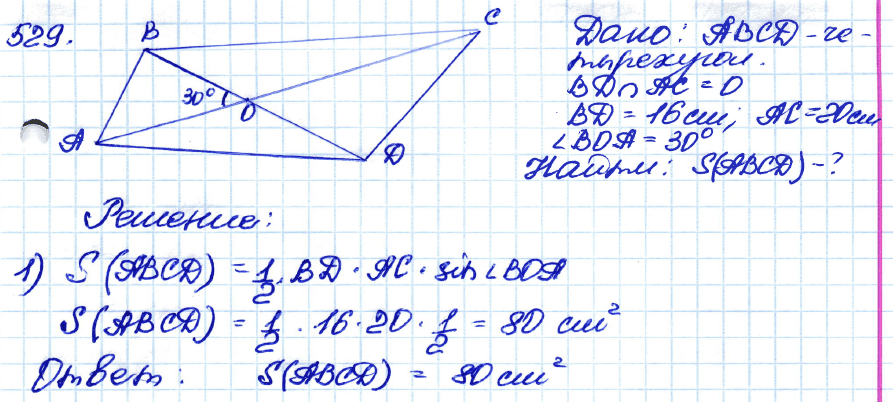 529.
B
C
30°
O
A
D
Дано: ABCD - че-
тырехугол.
BD ∩ AC = O
BD = 16 см; AC = 20 см
∠BOA = 30°
Найти: S(ABCD) - ?
Решение:
1) S(ABCD) = 1/2 · BD · AC · sin ∠BOA
S(ABCD) = 1/2 · 16 · 20 · 1/2 = 80 см²
Ответ: S(ABCD) = 80 см²